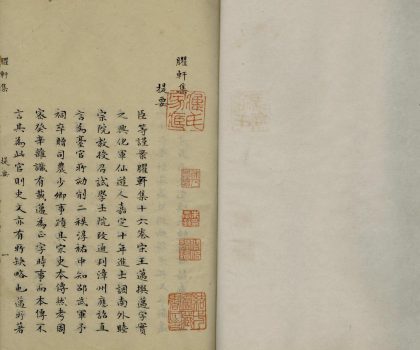 臞軒集
提要
臣等謹案臞軒集十六卷宋王邁撰邁字實
之興化軍仙遊人嘉定十年進士調南外睦
宗院教授召試學士院改通判漳州應詔直
言為臺官所劾削二秩淳祐中知邵武軍予
祠卒贈司農少卿事蹟具宋史本傳然考周
密癸辛雜識有載邁為正字時事而本傳不
言其為此官則史文亦有所缺略也邁所著
臞軒集
提要
一